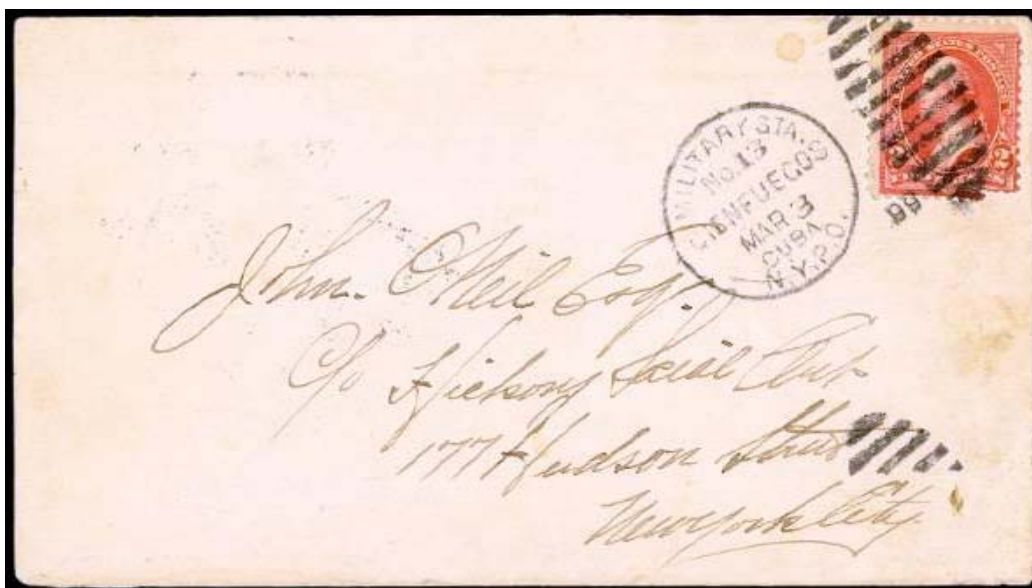 MILITARY STA.
No. 13
CIENFUEGOS
MAR 3
CUBA
N.Y.P.O.
99
2 2
John. O'Neil Esq.
C/o Hickory Social Club
177 Hudson Street
New York City